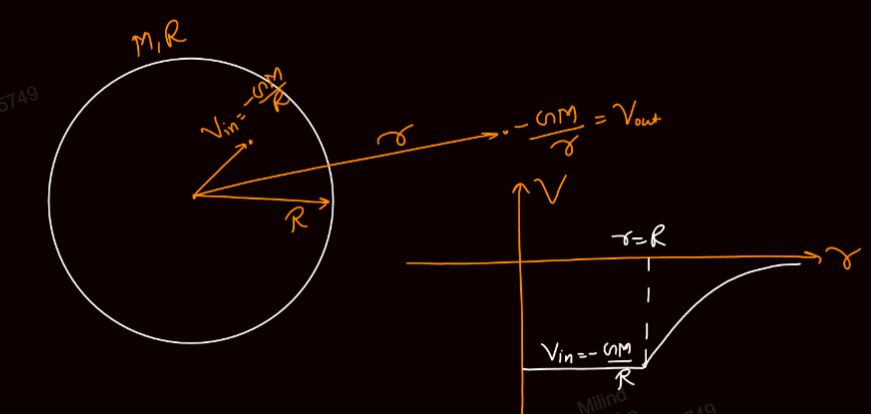 M, R
5749
Vin = -GM/R
r
-GM/r = Vout
R
V
r=R
r
Vin = -GM/R
Milind
749